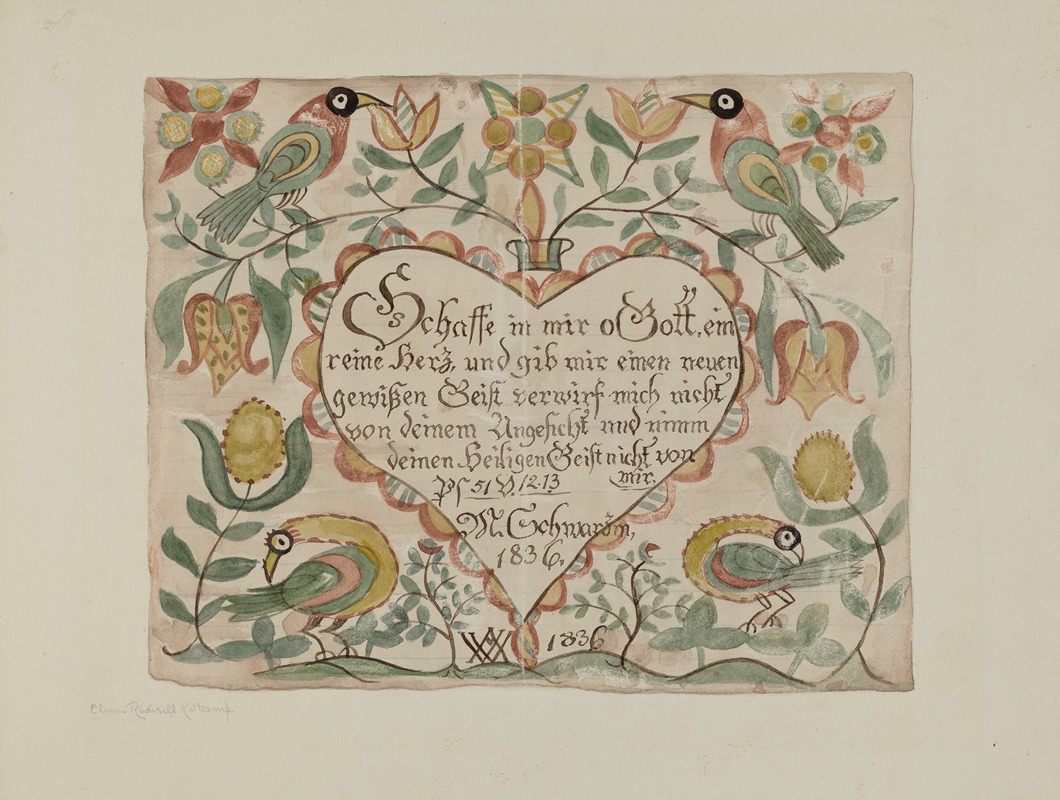 Schaffe in mir o Gott, ein
reine Herz, und gib mir einen neuen
gewißen Geist verwirf mich nicht
von deinem Angesicht und nimm
deinen Heiligen Geist nicht von
mir.
Ps 51 V. 12-13
M. Schwarzin,
1836.
1836
Elmer Radesill Kottcamp